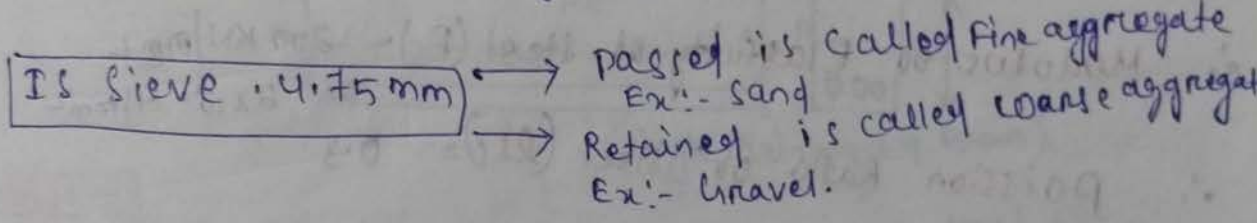 IS Sieve .4.75 mm
→ passed is called Fine aggregate
Ex:- Sand
→ Retained is called coarse aggregat
Ex:- Gravel.